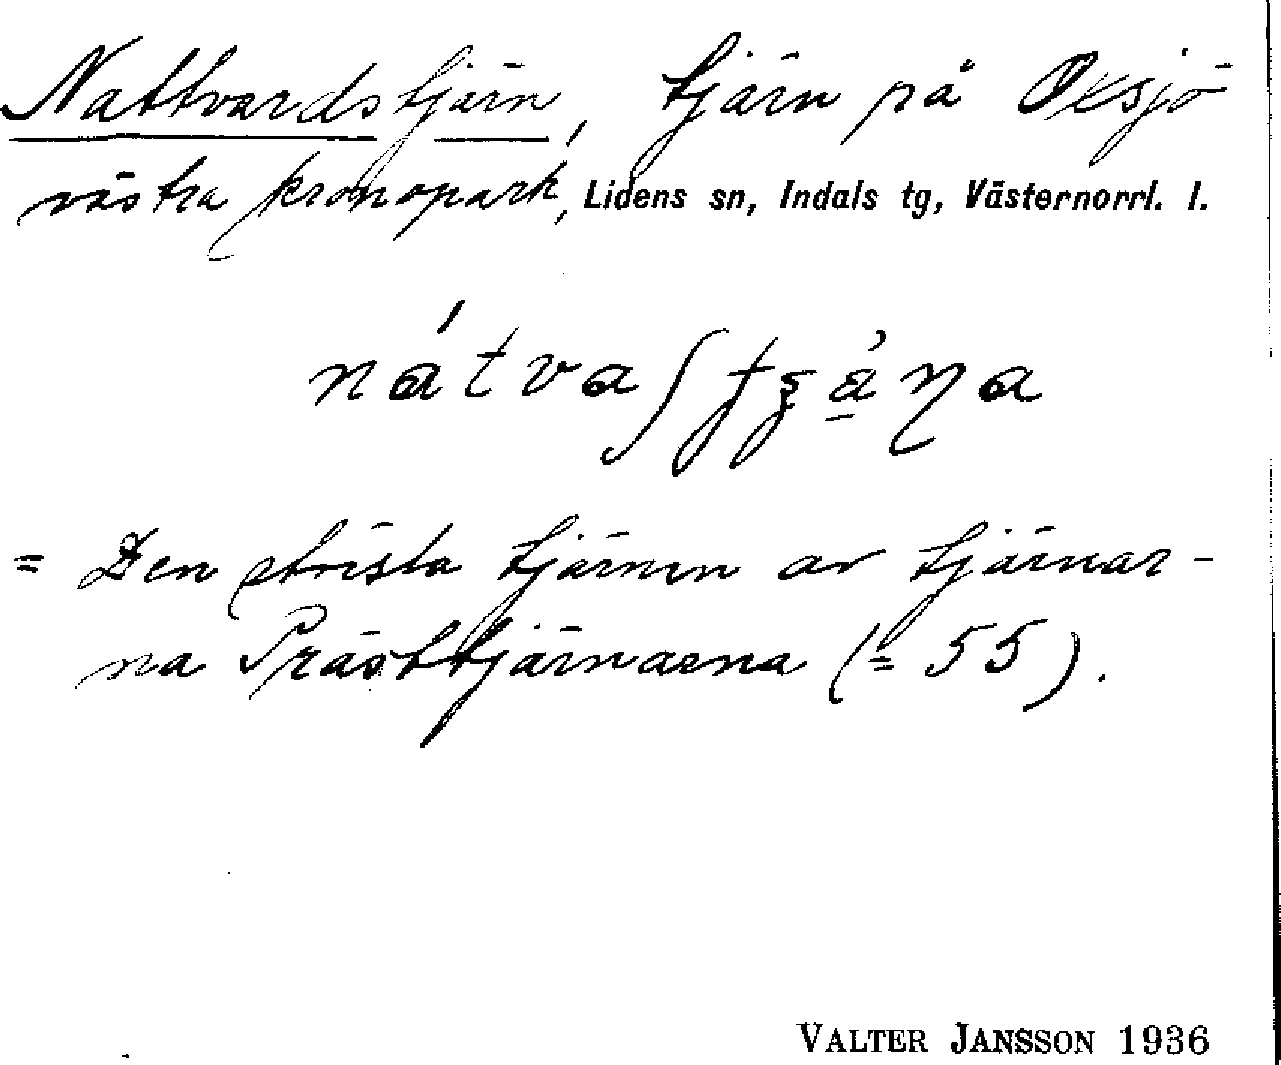 Nattvardstjärn, tjärn på Oksjö
västra kronopark, Lidens sn, Indals tg, Västernorrl. l.
= Den största tjärnen av tjärnar-
na Prästtjärnarna (= 55).
VALTER JANSSON 1936